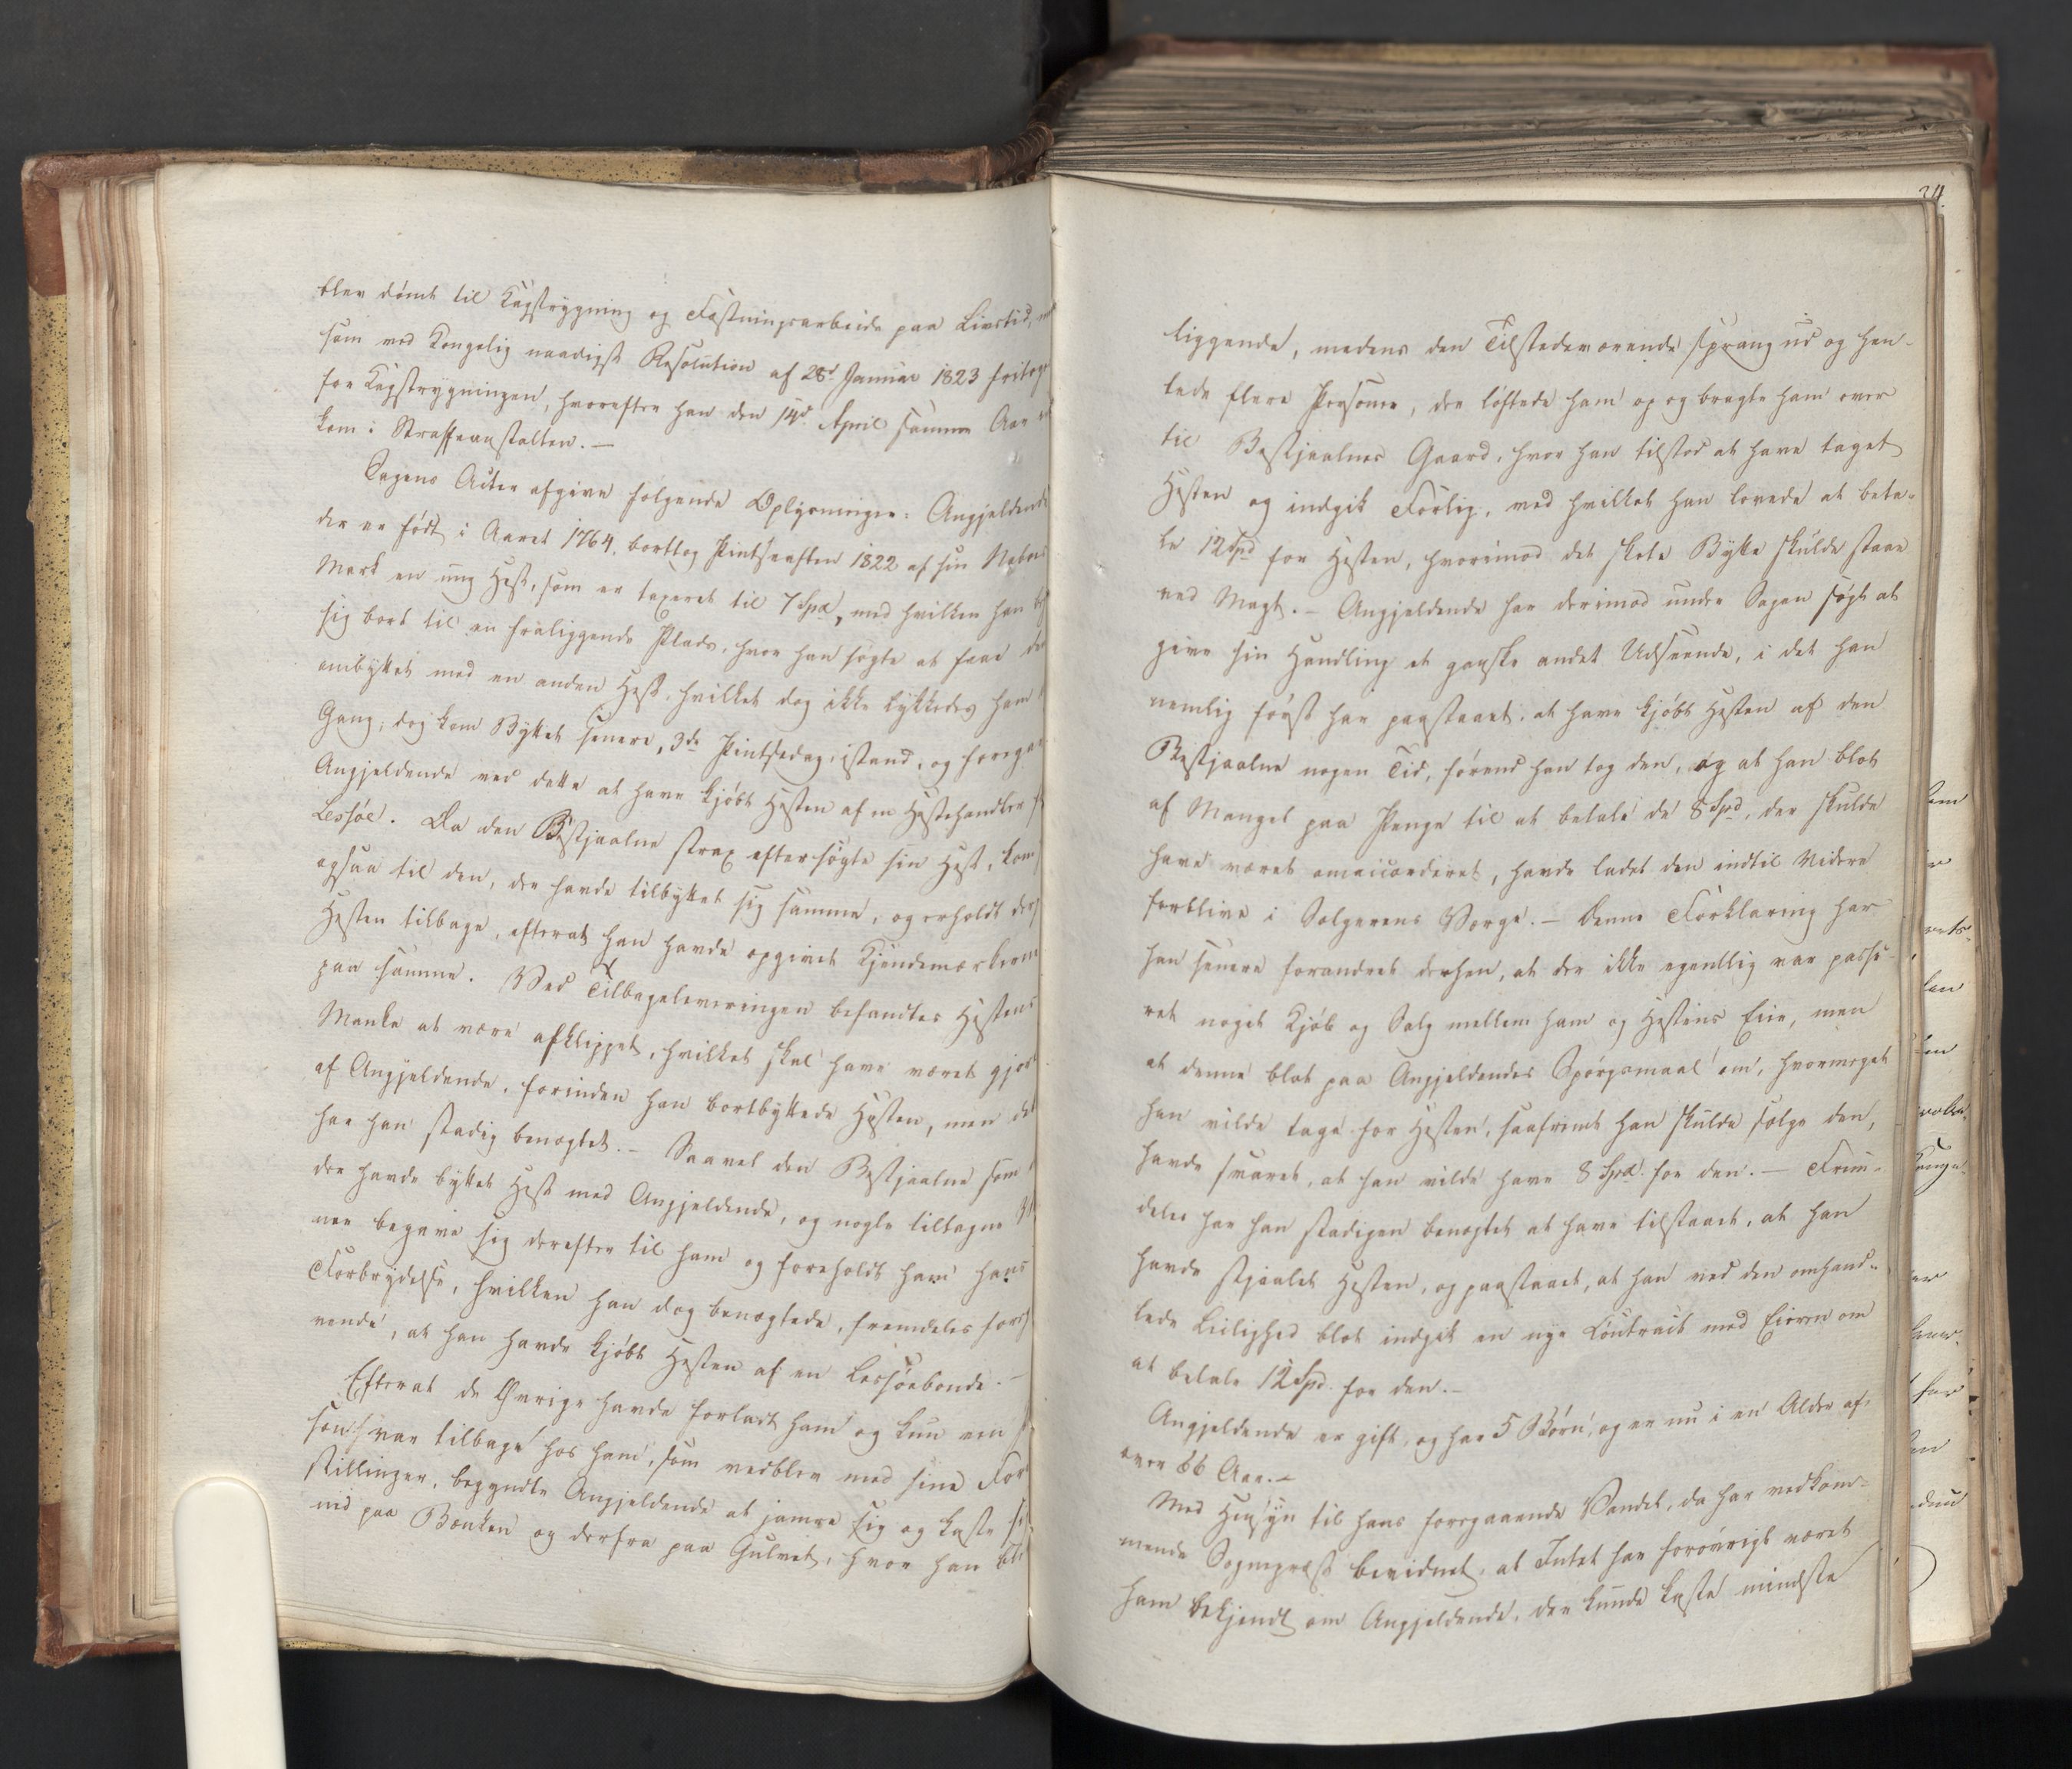 blev dømt til Kagstrygning og Fæstningsarbeide paa Livstid,
som ved Kongelig naadigst Resolution af 28d Januar 1823 fritoges
for Kagstrygningen, hvorefter han den 14d April samme Aar
kom i Straffeanstalten. –
Sagens Acter afgive følgende Oplysninger: Angjeldende
der er født i Aaret 1764, borttog Pintseaften 1822 af sin Naboes
Mark en ung Hest, som er taxeret til 7 Spd, med hvilken han
sig bort til en fraliggende Plads, hvor han søgte at faae den
ombyttet med en anden Hest, hvilket dog ikke lykkedes ham
Gang; dog kom Byttet senere, 3de Pintsedag, istand, og foregav
Angjeldende ved dette at have kjøbt Hesten af en Hestehandler
Lessøe. Da den Bestjaalne strax eftersøgte sin Hest, kom
ogsaa til den, der havde tilbyttet sig samme, og erholdt
Hesten tilbage, efterat han havde opgivet Kjendemærkerne
paa samme. Ved Tilbageleveringen befandtes Hestens
Manke at være afklippet, hvilket skal have været gjort
af Angjeldende, forinden han bortbyttede Hesten, men det
har han stadig benægtet. – Saavel den Bestjaalne som
der havde byttet Hest med Angjeldende, og nogle tiltagne
ner begave sig derefter til ham og foreholdt ham hans
Forbrydelse, hvilken han dog benægtede, fremdeles
vende, at han havde kjøbt Hesten af en Lessøebonde. –
Efterat de Øvrige havde forladt ham og kun een
son var tilbage hos ham, som vedblev med sine
stillinger, begyndte Angjeldende at jamre sig og kaste
ned paa Bænken og derfra paa Gulvet, hvor han blev
24.
liggende, medens den Tilstedeværende sprang ud og hen-
tede flere Personer, der løftede ham op og bragte ham over
til Bestjaalnes Gaard, hvor han tilstod at have taget
Hesten og indgik Forlig, ved hvilket han lovede at beta-
le 12 Spd for Hesten, hvorimod det skete Bytte skulde staae
ved Magt. – Angjeldende har derimod under Sagen søgt at
give sin Handling et ganske andet Udseende, i det han
nemlig først har paastaaet, at have kjøbt Hesten af den
Bestjaalne nogen Tid, førend han tog den, og at han blot
af Mangel paa Penge til at betale de 8 Spd, der skulde
have været omaccorderet, havde ladet den indtil Videre
forblive i Sælgerens Værge. – Denne Forklaring har
han senere forandret derhen, at der ikke egentlig var passe-
ret noget Kjøb og Salg mellem ham og Hestens Eier, men
at denne blot paa Angjeldendes Spørgsmaal om, hvormeget
han vilde tage for Hesten, saafremt han skulde sælge den,
havde svaret, at han vilde have 8 Spd for den. – Frem-
deles har han stadigen benægtet at have tilstaaet, at han
havde stjaalet Hesten, og paastaaet, at han ved den omhand-
lede Leilighed blot indgik en nye Contract med Eieren om
at betale 12 Spd for den. –
Angjeldende er gift, og har 5 Børn, og er nu i en Alder af
over 66 Aar. –
Med Hensyn til hans foregaaende Vandel, da har vedkom-
mende Sognepræst bevidnet, at Intet har forøvrigt været
ham bekjendt om Angjeldende, der kunde kaste mindste